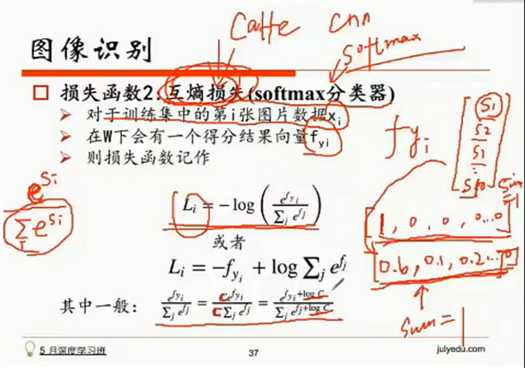 Caffe cnn
softmax
图像识别
损失函数2:互熵损失(softmax分类器)
对于训练集中的第i张图片数据x_i
在W下会有一个得分结果向量f_{yi}
则损失函数记作
f_{yi}
S1
S2
S1
⋮
S10
e^{Si}
Σ e^{Si}
L_i = -log ( e^{f_{y_i}} / Σ_j e^{f_j} )
1, 0, 0, 0...0
sum=1
或者
L_i = -f_{y_i} + log Σ_j e^{f_j}
0.6, 0.1, 0.2...
其中一般: e^{f_{y_i}} / Σ_j e^{f_j} = C e^{f_{y_i}} / C Σ_j e^{f_j} = e^{f_{y_i} + log C} / Σ_j e^{f_j + log C}
sum=1
5月深度学习班
37
julyedu.com